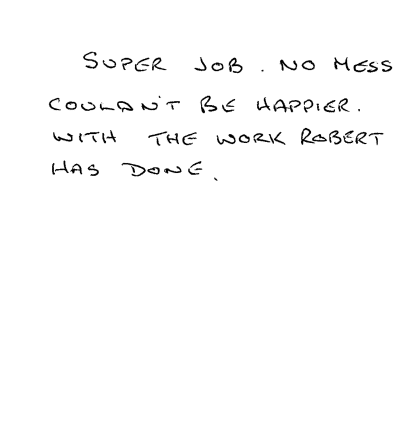 SUPER JOB. NO MESS
COULDN'T BE HAPPIER.
WITH THE WORK ROBERT
HAS DONE.